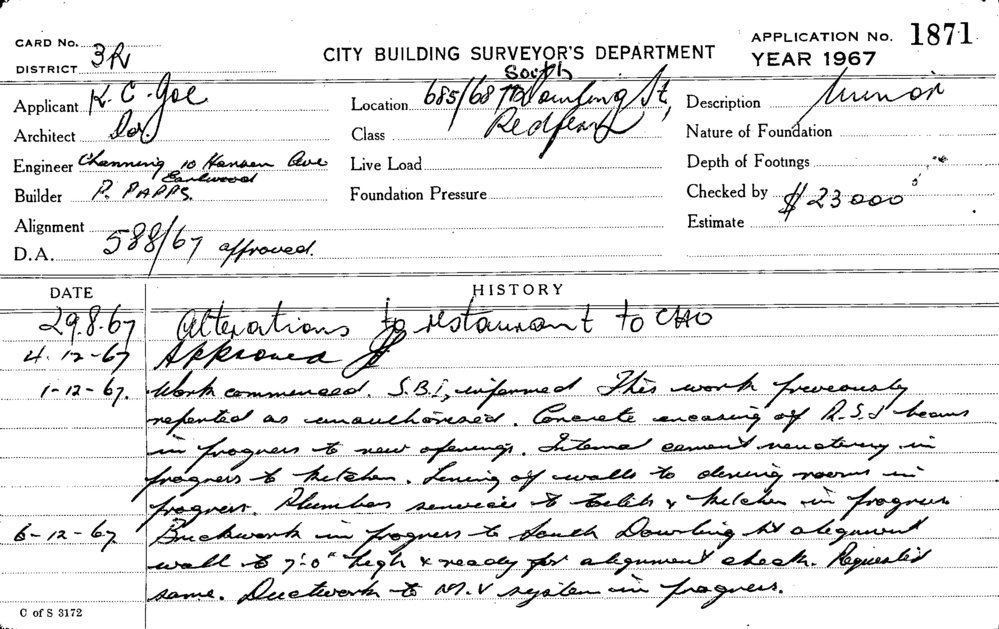 CARD No. 3R
CITY BUILDING SURVEYOR'S DEPARTMENT
APPLICATION No. 1871
DISTRICT
YEAR 1967
Applicant K. C. Joe
Location 685/687 South Dowling St,
Description Minor
Architect Do.
Class Redfern
Nature of Foundation
Engineer Channing 10 Hansen Ave
Earlwood
Live Load
Depth of Footings
Builder P. PAPPS.
Foundation Pressure
Checked by
Alignment
Estimate $23000
D.A. 588/67 approved.
DATE
HISTORY
29.8.67 Alterations to restaurant to
4.12-67 Approved
1-12-67. Work commenced. S.B.I, informed This work preveously
reported as unauthorised. Concrete encasing of R.S.J beams
in progress to new openings. Internal cement rendering in
progress to kitchen. Lining of walls to dining rooms in
progress. Plumber services to toilets & kitchen in progress
6-12-67. Brickwork in progress to South Dowling St alignment
wall to 7'-0" high & ready for alignment check. Requested
same. Ductwork to M.V system in progress.
C of S 3172